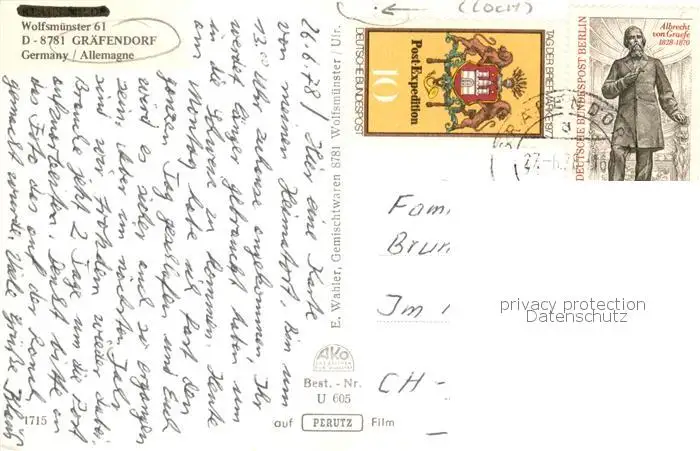 Wolfsmünster 61
D - 8781 GRÄFENDORF
Germany / Allemagne
26.6.78 / Hier eine Karte
von meinem Heimatort. Bin um
13.00 Uhr zuhause angekommen. Ihr
werdet länger gebraucht haben um
in die Schweiz zu kommen. Heute
am Montag habe ich fast den
ganzen Tag geschlafen und Euch
wird es sicher auch so ergangen
sein. Aber im nächsten Jahr
sind wir trotzdem wieder dabei.
Brauche jetzt 2 Tage um die Post
aufzuarbeiten. Denkt bitte an
das Foto das auf der
gemacht wurde. Viele Grüße Klaus
1715
E. Wahler, Gemischtwaren 8781 Wolfsmünster / Ufr.
AKO
Best. - Nr.
U 605
auf PERUTZ Film
(LOCH)
TAG DER BRIEFMARKE 1977
DEUTSCHE BUNDESPOST
Post-Expedition
10
Albrecht
von Graefe
1828-1870
DEUTSCHE BUNDESPOST BERLIN
Fam
Brun
Im
CH -
privacy protection
Datenschutz